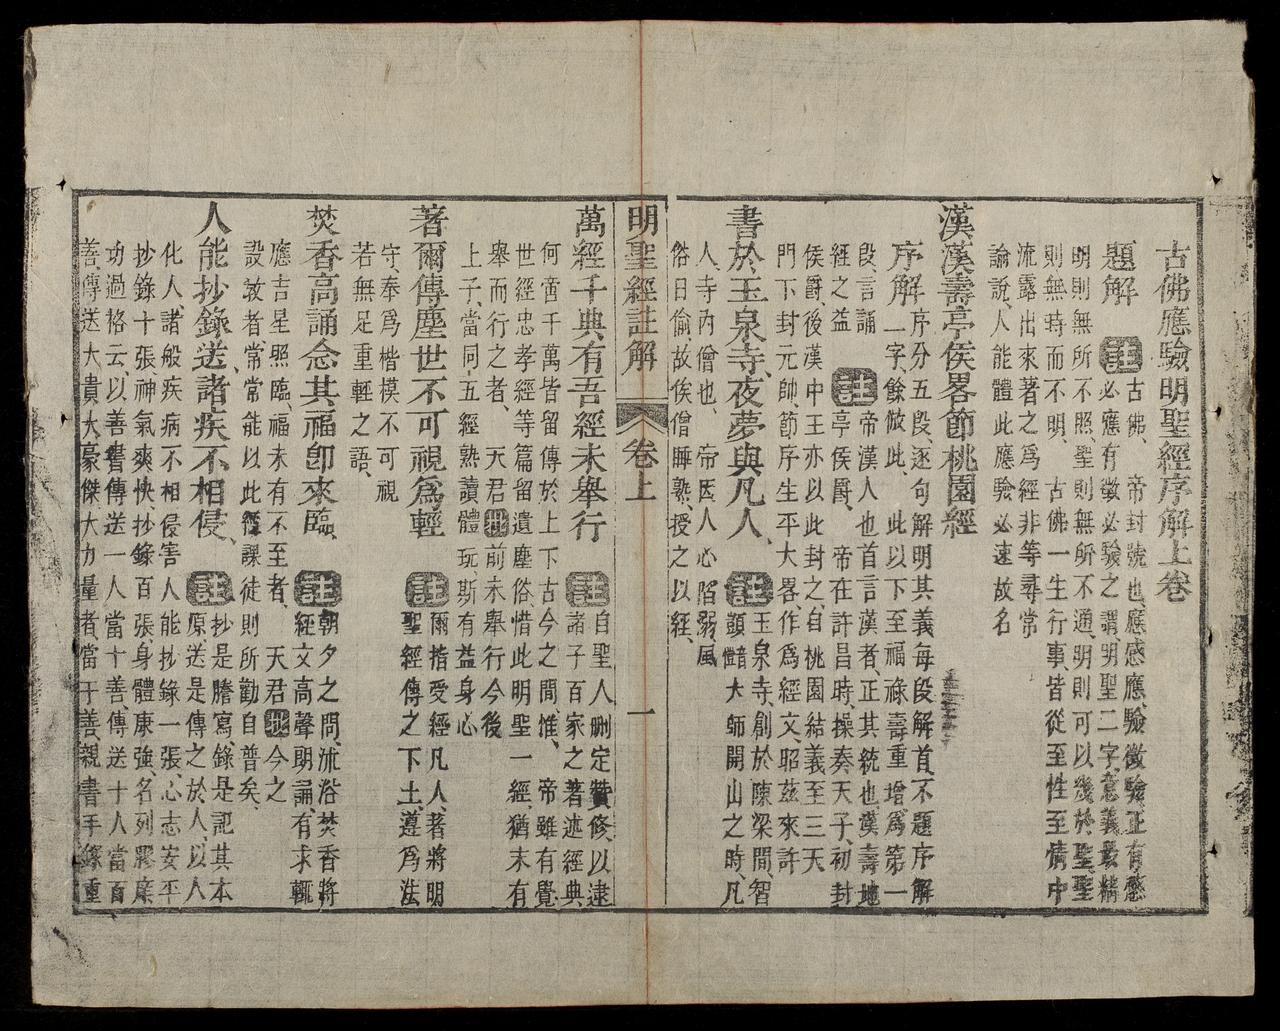 古佛應驗明聖經序解上卷
題解 註 古佛、帝封號也、應感應、驗徵驗、正有感
必應有徵必驗之謂、明聖二字、意義最精
明則無所不照、聖則無所不通、明則可以幾於聖、聖
則無時而不明、古佛一生行事、皆從至性至情中
流露出來著之為經非等尋常
論說、人能體此應驗必速故名
漢漢壽亭侯畧節桃園經
序解 序分五段、逐句解明其義每段解首、不題序解
一字、餘倣此、此以下至福祿壽重增、為第一
段、言誦
經之益 註 帝漢人也首言漢者、正其統也、漢壽地
亭侯爵、帝在許昌時、操奏天子、初封
侯爵、後漢中王亦以此封之、自桃園結義至三天
門下封元帥、節序生平大畧、作為經文、昭茲來許
書於玉泉寺、夜夢與凡人、 註 玉泉寺、創於陳梁間、智
顗大師開山之時、凡
人、寺內僧也、帝因人心陷弱、風
俗日偷、故俟僧睡熟、授之以經、
明聖經註解 卷上 一
萬經千典有吾經未舉行 註 自聖人刪定贊修、以逮
諸子百家之著述經典
何啻千萬皆留傳於上下古今之間、惟、帝雖有覺
世經忠孝經等篇留遺塵俗、惜此明聖一經、猶未有
舉而行之者、天君批前未舉行今後
上子、當同五經熟讀體玩斯有益身心
著爾傳塵世不可視為輕 註 爾指受經凡人、著將明
聖經傳之下土遵為法
守、奉為楷模不可視
若無足重輕之語、
焚香高誦念其福卽來臨、 註 朝夕之間、沐浴焚香將
經文高聲朗誦、有求輒
應吉星照臨、福未有不至者、天君批今之
設教者常常能以此經課徒則所勸自普矣、
人能抄錄送、諸疾不相侵、 註 抄是謄寫、錄是記其本
原、送是傳之於人、以人
化人、諸般疾病不相侵害人能抄錄一張、心志安平
抄錄十張神氣爽快、抄錄百張身體康強、名列膠庠
功過格云以善書傳送一人當十善傳送十人當百
善、傳送大貴大豪傑大力量者、當千善親書手錄重